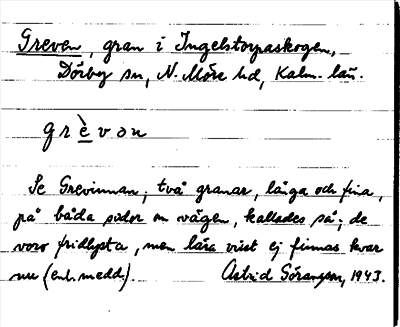 Greven, gran i Ingelstorpaskogen,
Dörby sn, N. Möre hd, Kalm. län.
grèvon
Se Grevinnan; två granar, låga och fina,
på båda sidor om vägen, kallades så; de
voro fridlysta, men lära visst ej finnas kvar
nu (enl. medd.). Astrid Göransson, 1943.